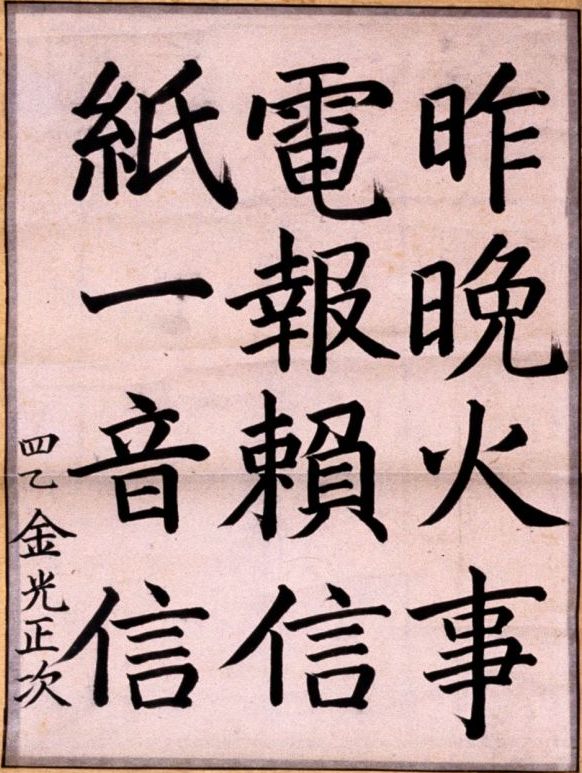 昨晩火事
電報賴信
紙一音信
四乙金光正次